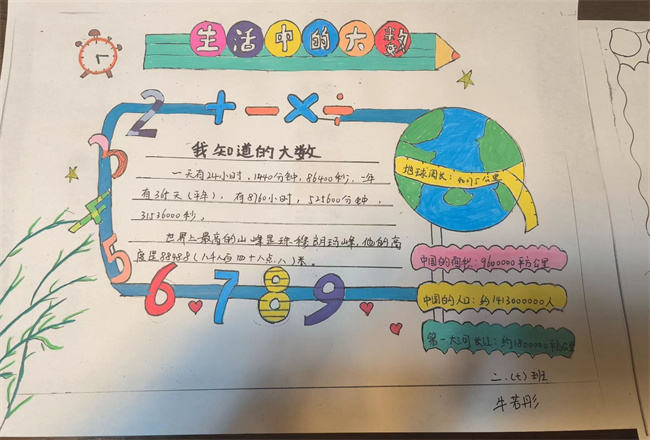 生活中的大数
2 + - × ÷
3
5
6.789
我知道的大数
一天有24小时,1440分钟,86400秒,一年
有365天(平年),有8760小时,525600分钟,
31536000秒。
世界上最高的山峰是珠穆朗玛峰,他的高
度是88488(八千八百四十八点八)米。
地球周长:40075公里
中国的面积:9600000平方公里
中国的人口:约1413000000人
第一大河长江:约1800000平方公里
二.(七)班
牛若彤